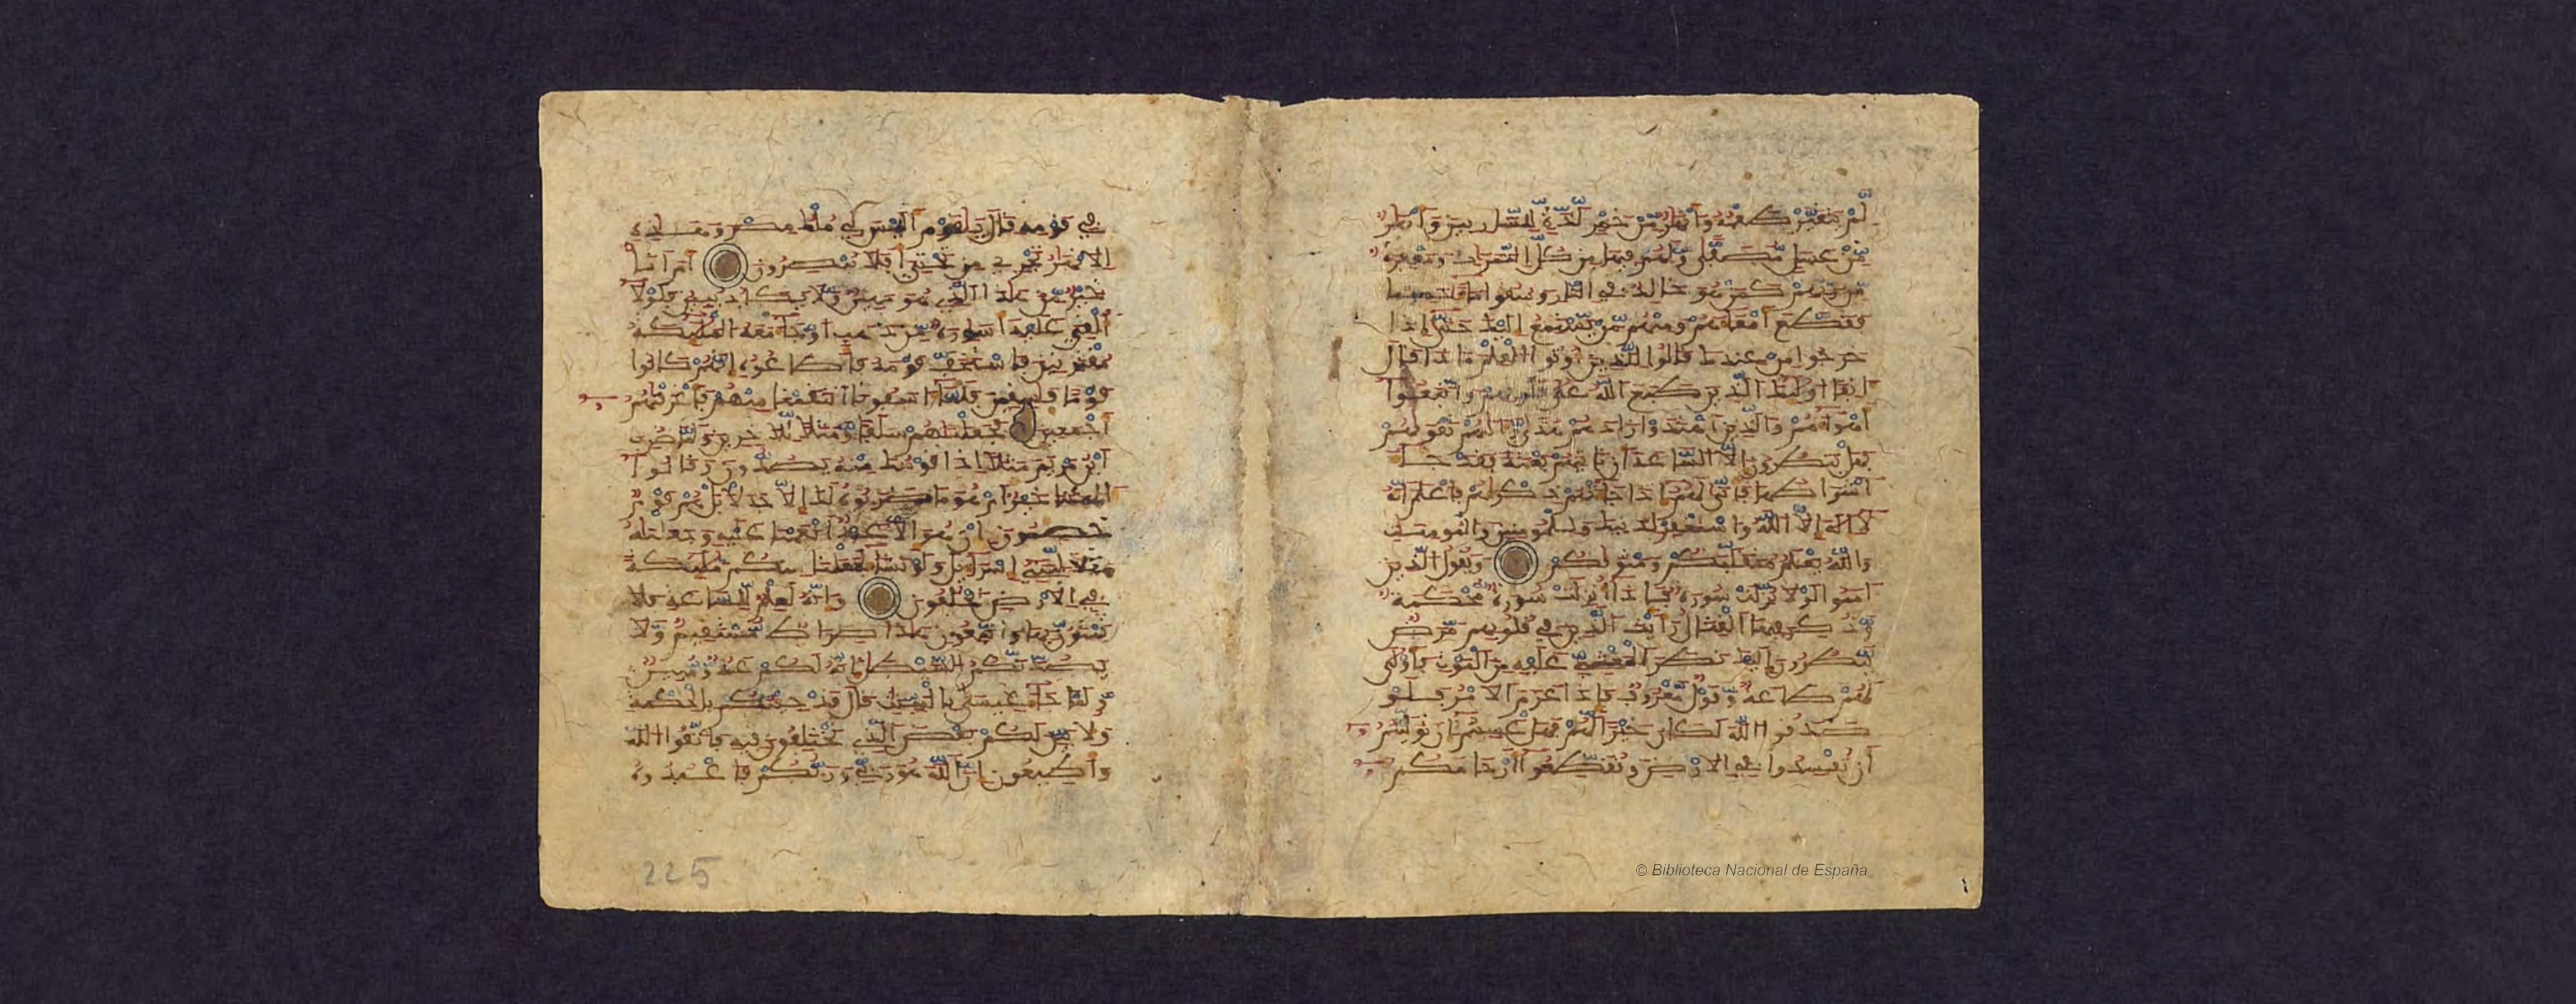 لم يتغير طعمه وأنهر من خمر لذة للشاربين وأنهر
من عسل مصفى ولهم فيها من كل الثمرات ومغفرة
من ربهم كمن هو خالد في النار وسقوا ماء حميما
فقطع أمعاءهم ومنهم من يستمع إليك حتى إذا
خرجوا من عندك قالوا للذين أوتوا العلم ماذا قال
ءانفا أولئك الذين طبع الله على قلوبهم واتبعوا
أهواءهم والذين اهتدوا زادهم هدى وءاتيهم تقويهم
فهل ينظرون إلا الساعة أن تأتيهم بغتة فقد جاء
أشراطها فأنى لهم إذا جاءتهم ذكريهم فاعلم أنه
لا إله إلا الله واستغفر لذنبك وللمومنين والمومنات
والله يعلم متقلبكم ومثويكم ويقول الذين
ءامنوا لولا نزلت سورة فإذا أنزلت سورة محكمة
وذكر فيها القتال رأيت الذين في قلوبهم مرض
ينظرون إليك نظر المغشي عليه من الموت فأولى
لهم طاعة وقول معروف فإذا عزم الأمر فلو
صدقوا الله لكان خيرا لهم فهل عسيتم إن توليتم
أن تفسدوا في الأرض وتقطعوا أرحامكم
في قومه قال يقوم أليس لي ملك مصر وهذه
الأنهر تجري من تحتي أفلا تبصرون أم أنا
خير من هذا الذي هو مهين ولا يكاد يبين فلولا
ألقي عليه أسورة من ذهب أو جاء معه الملئكة
مقترنين فاستخف قومه فأطاعوه إنهم كانوا
قوما فسقين فلما ءاسفونا انتقمنا منهم فأغرقنهم
أجمعين فجعلنهم سلفا ومثلا للآخرين ولما ضرب
ابن مريم مثلا إذا قومك منه يصدون وقالوا
ءألهتنا خير أم هو ما ضربوه لك إلا جدلا بل هم قوم
خصمون إن هو إلا عبد أنعمنا عليه وجعلنه
مثلا لبني إسراءيل ولو نشاء لجعلنا منكم ملئكة
في الأرض يخلفون وإنه لعلم للساعة فلا
تمترن بها واتبعون هذا صراط مستقيم ولا
يصدنكم الشيطن إنه لكم عدو مبين
ولما جاء عيسى بالبينت قال قد جئتكم بالحكمة
ولأبين لكم بعض الذي تختلفون فيه فاتقوا الله
وأطيعون إن الله هو ربي وربكم فاعبدوه
225
© Biblioteca Nacional de España